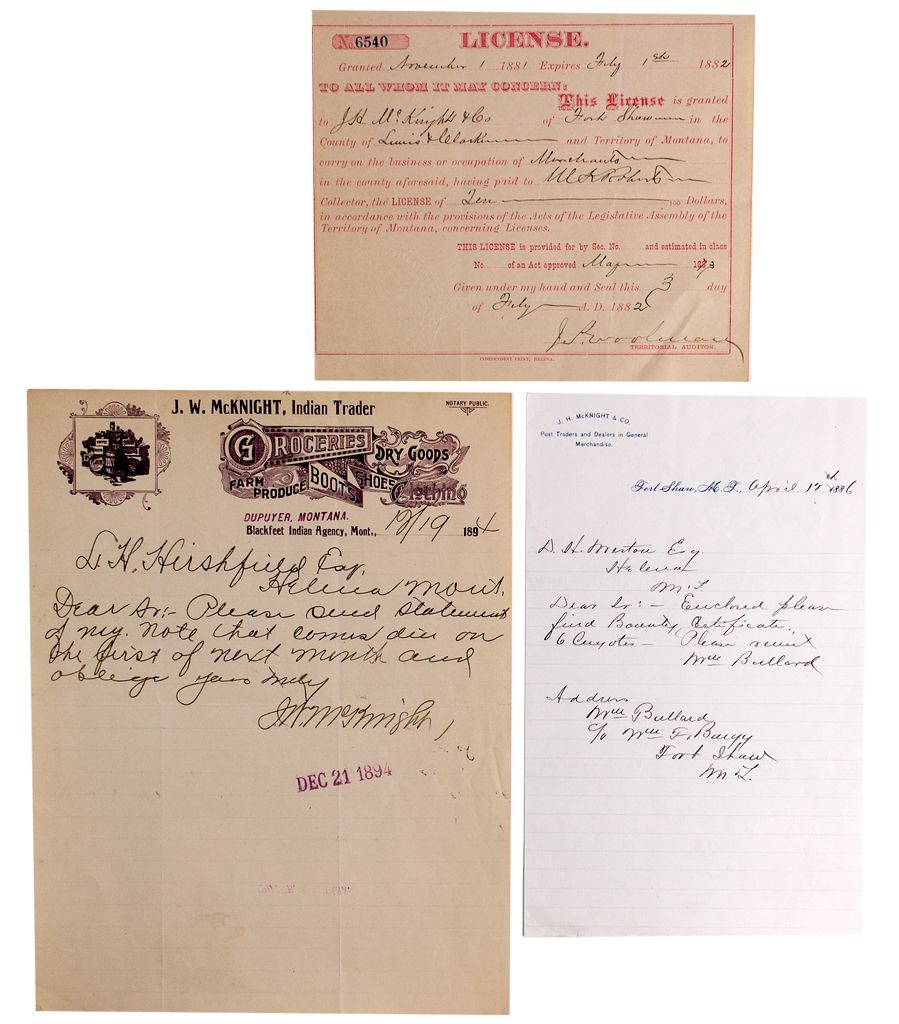 No. 6540
LICENSE.
Granted November 1 1881 Expires Feby 1st 1882
TO ALL WHOM IT MAY CONCERN:
This License is granted
to J.H. McKnight & Co of Fort Shaw in the
County of Lewis & Clarke and Territory of Montana, to
carry on the business or occupation of Merchants
in the county aforesaid, having paid to W K Roberts
Collector, the LICENSE of Ten 100 Dollars,
in accordance with the provisions of the Acts of the Legislative Assembly of the
Territory of Montana, concerning Licenses.
THIS LICENSE is provided for by Sec. No. and estimated in class
No. of an Act approved May 18
Given under my hand and Seal this 3 day
of Feby A. D. 1882
J.P. Woolman
TERRITORIAL AUDITOR.
INDEPENDENT PRINT, HELENA.
J. W. McKNIGHT, Indian Trader
NOTARY PUBLIC.
GROCERIES
DRY GOODS
FARM PRODUCE
BOOTS
SHOES
Clothing
DUPUYER, MONTANA.
Blackfeet Indian Agency, Mont., 12/19 1894
L.H. Hirshfield Esq.
Helena Mont.
Dear Sr:- Please send statement
of my note that comes due on
the first of next month and
oblige yours truly
J.W. McKnight
DEC 21 1894
J. H. McKNIGHT & CO.
Post Traders and Dealers in General
Merchandise.
Fort Shaw, M. T., April 12th 1886
D. H. Weston Esq.
Helena
M.T.
Dear Sr:- Enclosed please
find Bounty Certificate,
6 Cuyotes - Please remit
Wm Bullard
Address
Wm Bullard
c/o Wm F.
Fort Shaw
M.T.